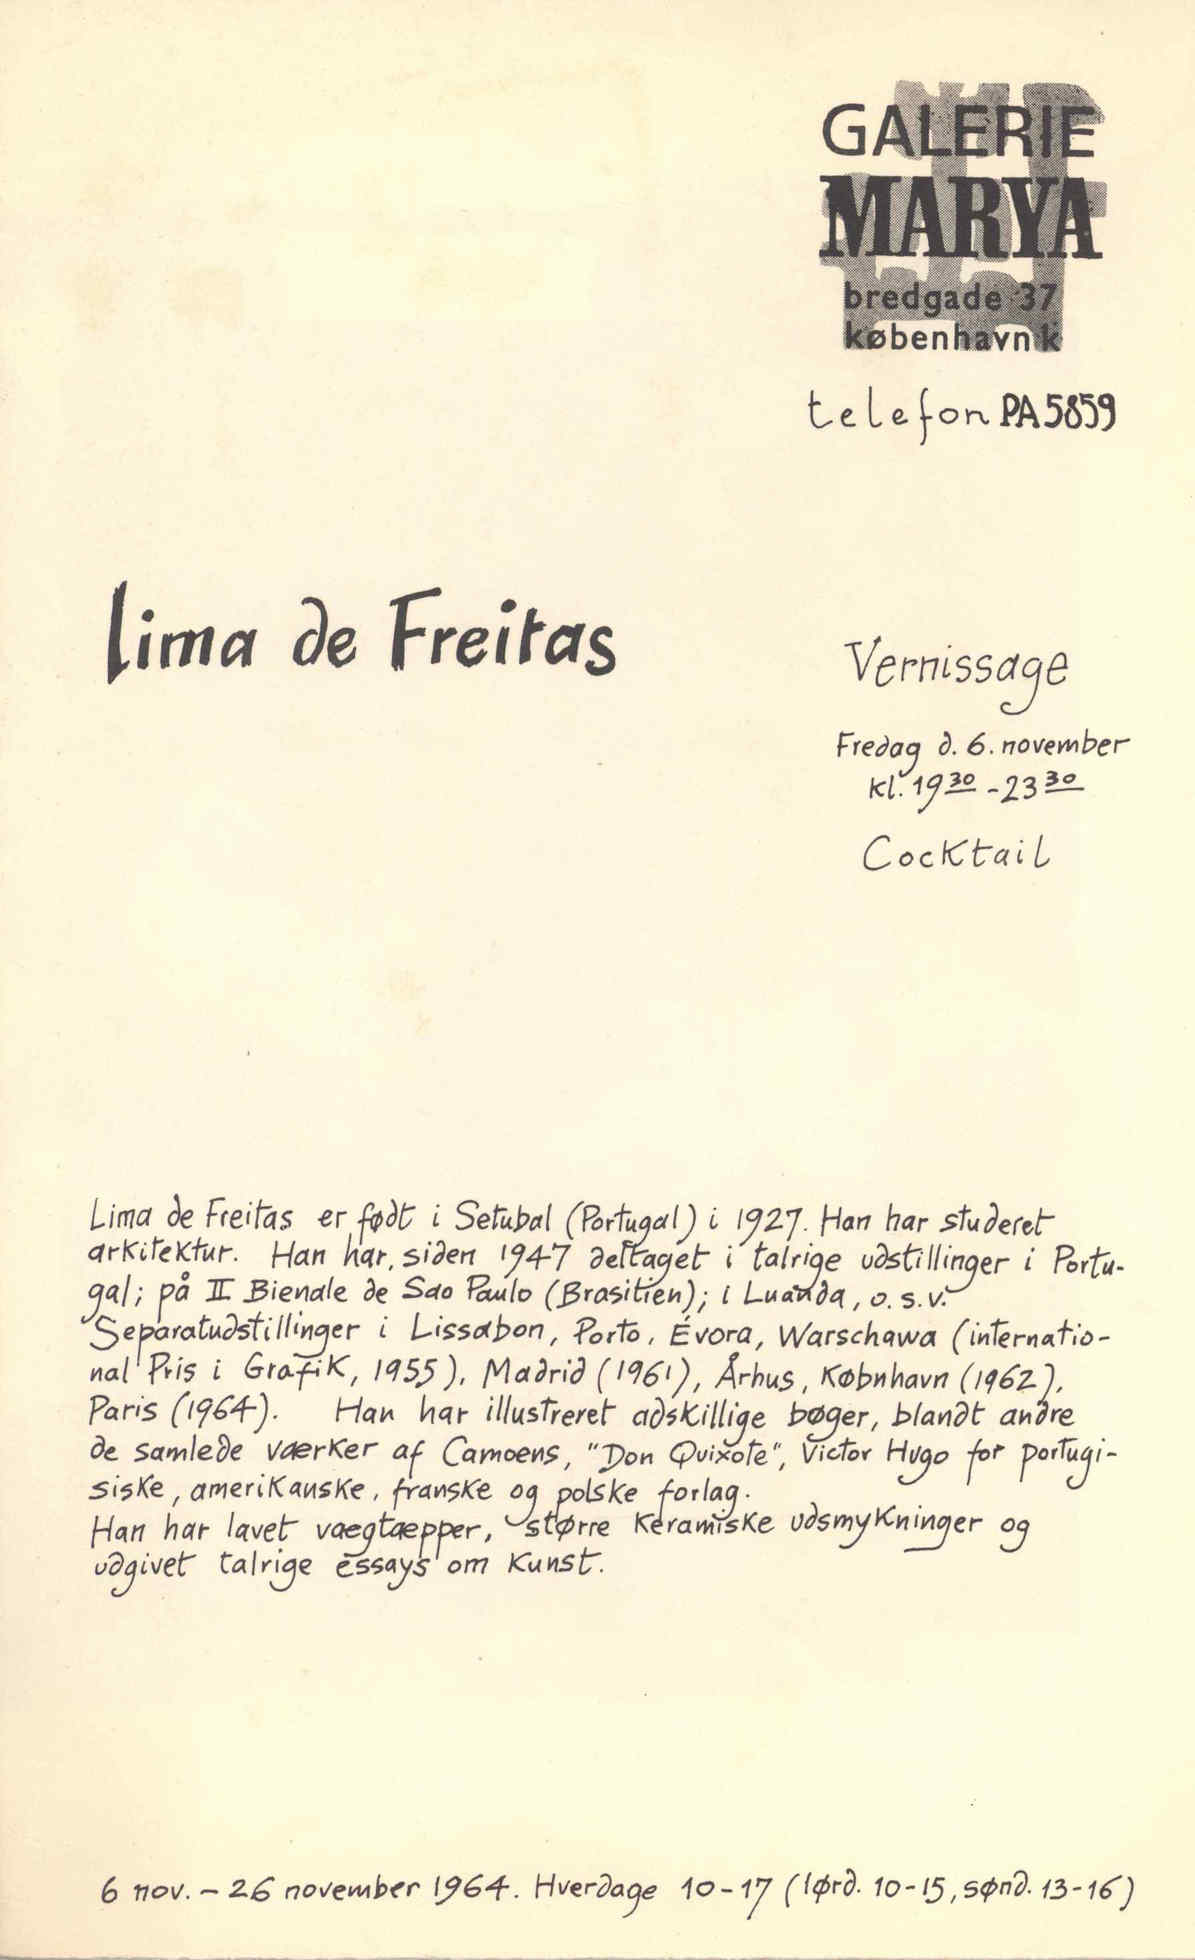 GALERIE
MARYA
bredgade 37
københavn k
telefon PA 5859
Lima de Freitas
Vernissage
Fredag d. 6. november
kl. 19 30 - 23 30
Cocktail
Lima de Freitas er født i Setubal (Portugal) i 1927. Han har studeret
arkitektur. Han har, siden 1947 deltaget i talrige udstillinger i Portu-
gal; på II Bienale de Sao Paulo (Brasilien); i Luanda, o.s.v.
Separatudstillinger i Lissabon, Porto, Évora, Warschawa (internatio-
nal Pris i Grafik, 1955), Madrid (1961), Århus, Købnhavn (1962),
Paris (1964). Han har illustreret adskillige bøger, blandt andre
de samlede værker af Camoens, "Don Quixote", Victor Hugo for portugi-
siske, amerikanske, franske og polske forlag.
Han har lavet vægtæpper, større keramiske udsmykninger og
udgivet talrige essays om kunst.
6 nov. - 26 november 1964. Hverdage 10-17 (lørd. 10-15, sønd. 13-16)